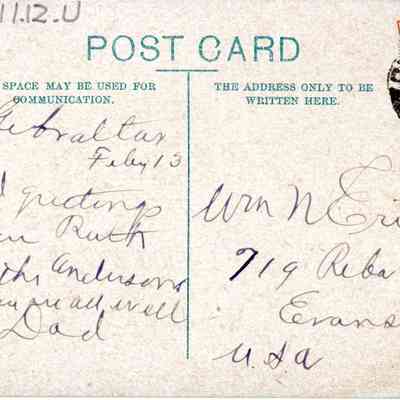 11.12.U
POST CARD
SPACE MAY BE USED FOR
COMMUNICATION.
THE ADDRESS ONLY TO BE
WRITTEN HERE.
Gibraltar
Feby 13
greetings
Ruth
Andersons
are all well
Dad
Wm N Eri
719 Reba
Evans
U.S.A